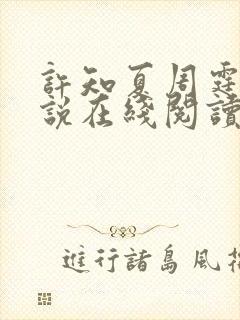 許知夏周霆
説在綫閱讀
進行諸島風